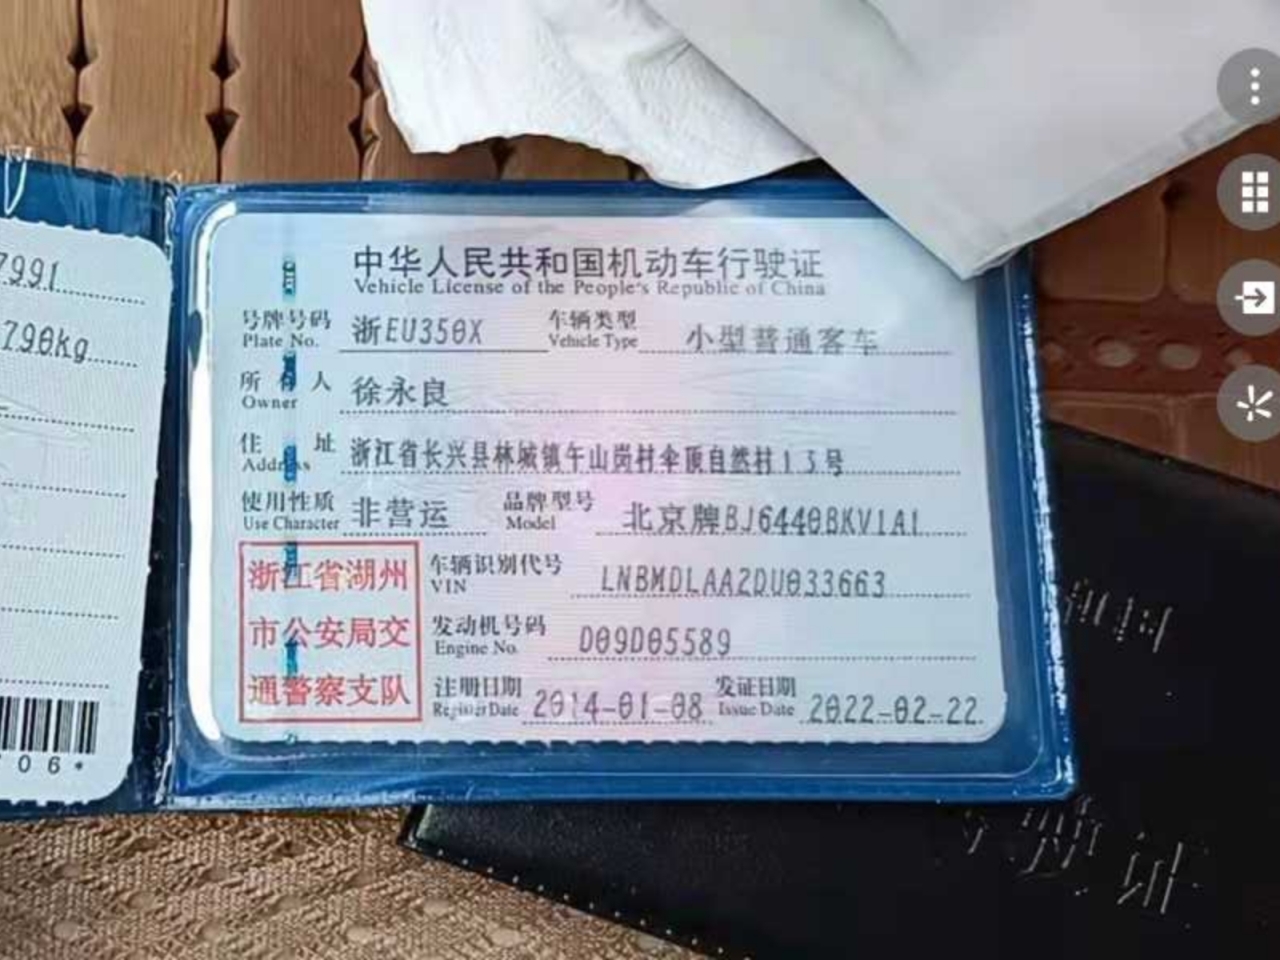 7991
790kg
06*
中华人民共和国机动车行驶证
Vehicle License of the People's Republic of China
号牌号码 浙EU350X 车辆类型 小型普通客车
Plate No. Vehicle Type
所有人 徐永良
Owner
住址 浙江省长兴县林城镇午山岗村伞顶自然村13号
Address
使用性质 非营运 品牌型号 北京牌BJ6440BKV1A1
Use Character Model
浙江省湖州
市公安局交
通警察支队
车辆识别代号 LNBMDLAA2DU033663
VIN
发动机号码 D09D05589
Engine No.
注册日期 2014-01-08 发证日期 2022-02-22
Register Date Issue Date
证